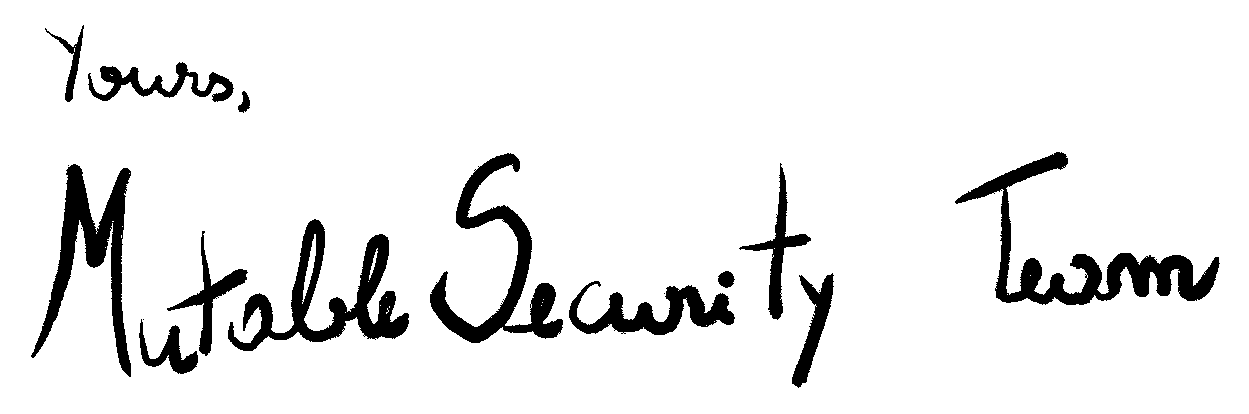 Yours,
MutableSecurity Team